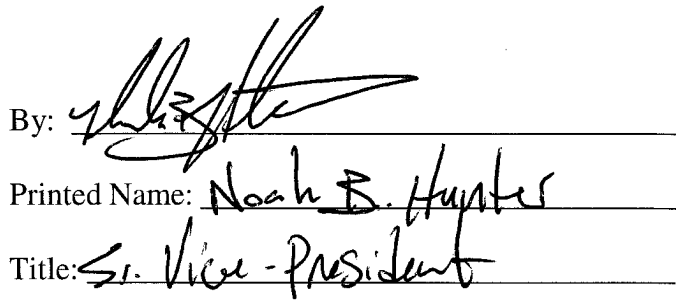 By:
Printed Name: Noah B. Hunter
Title: Sr. Vice-President